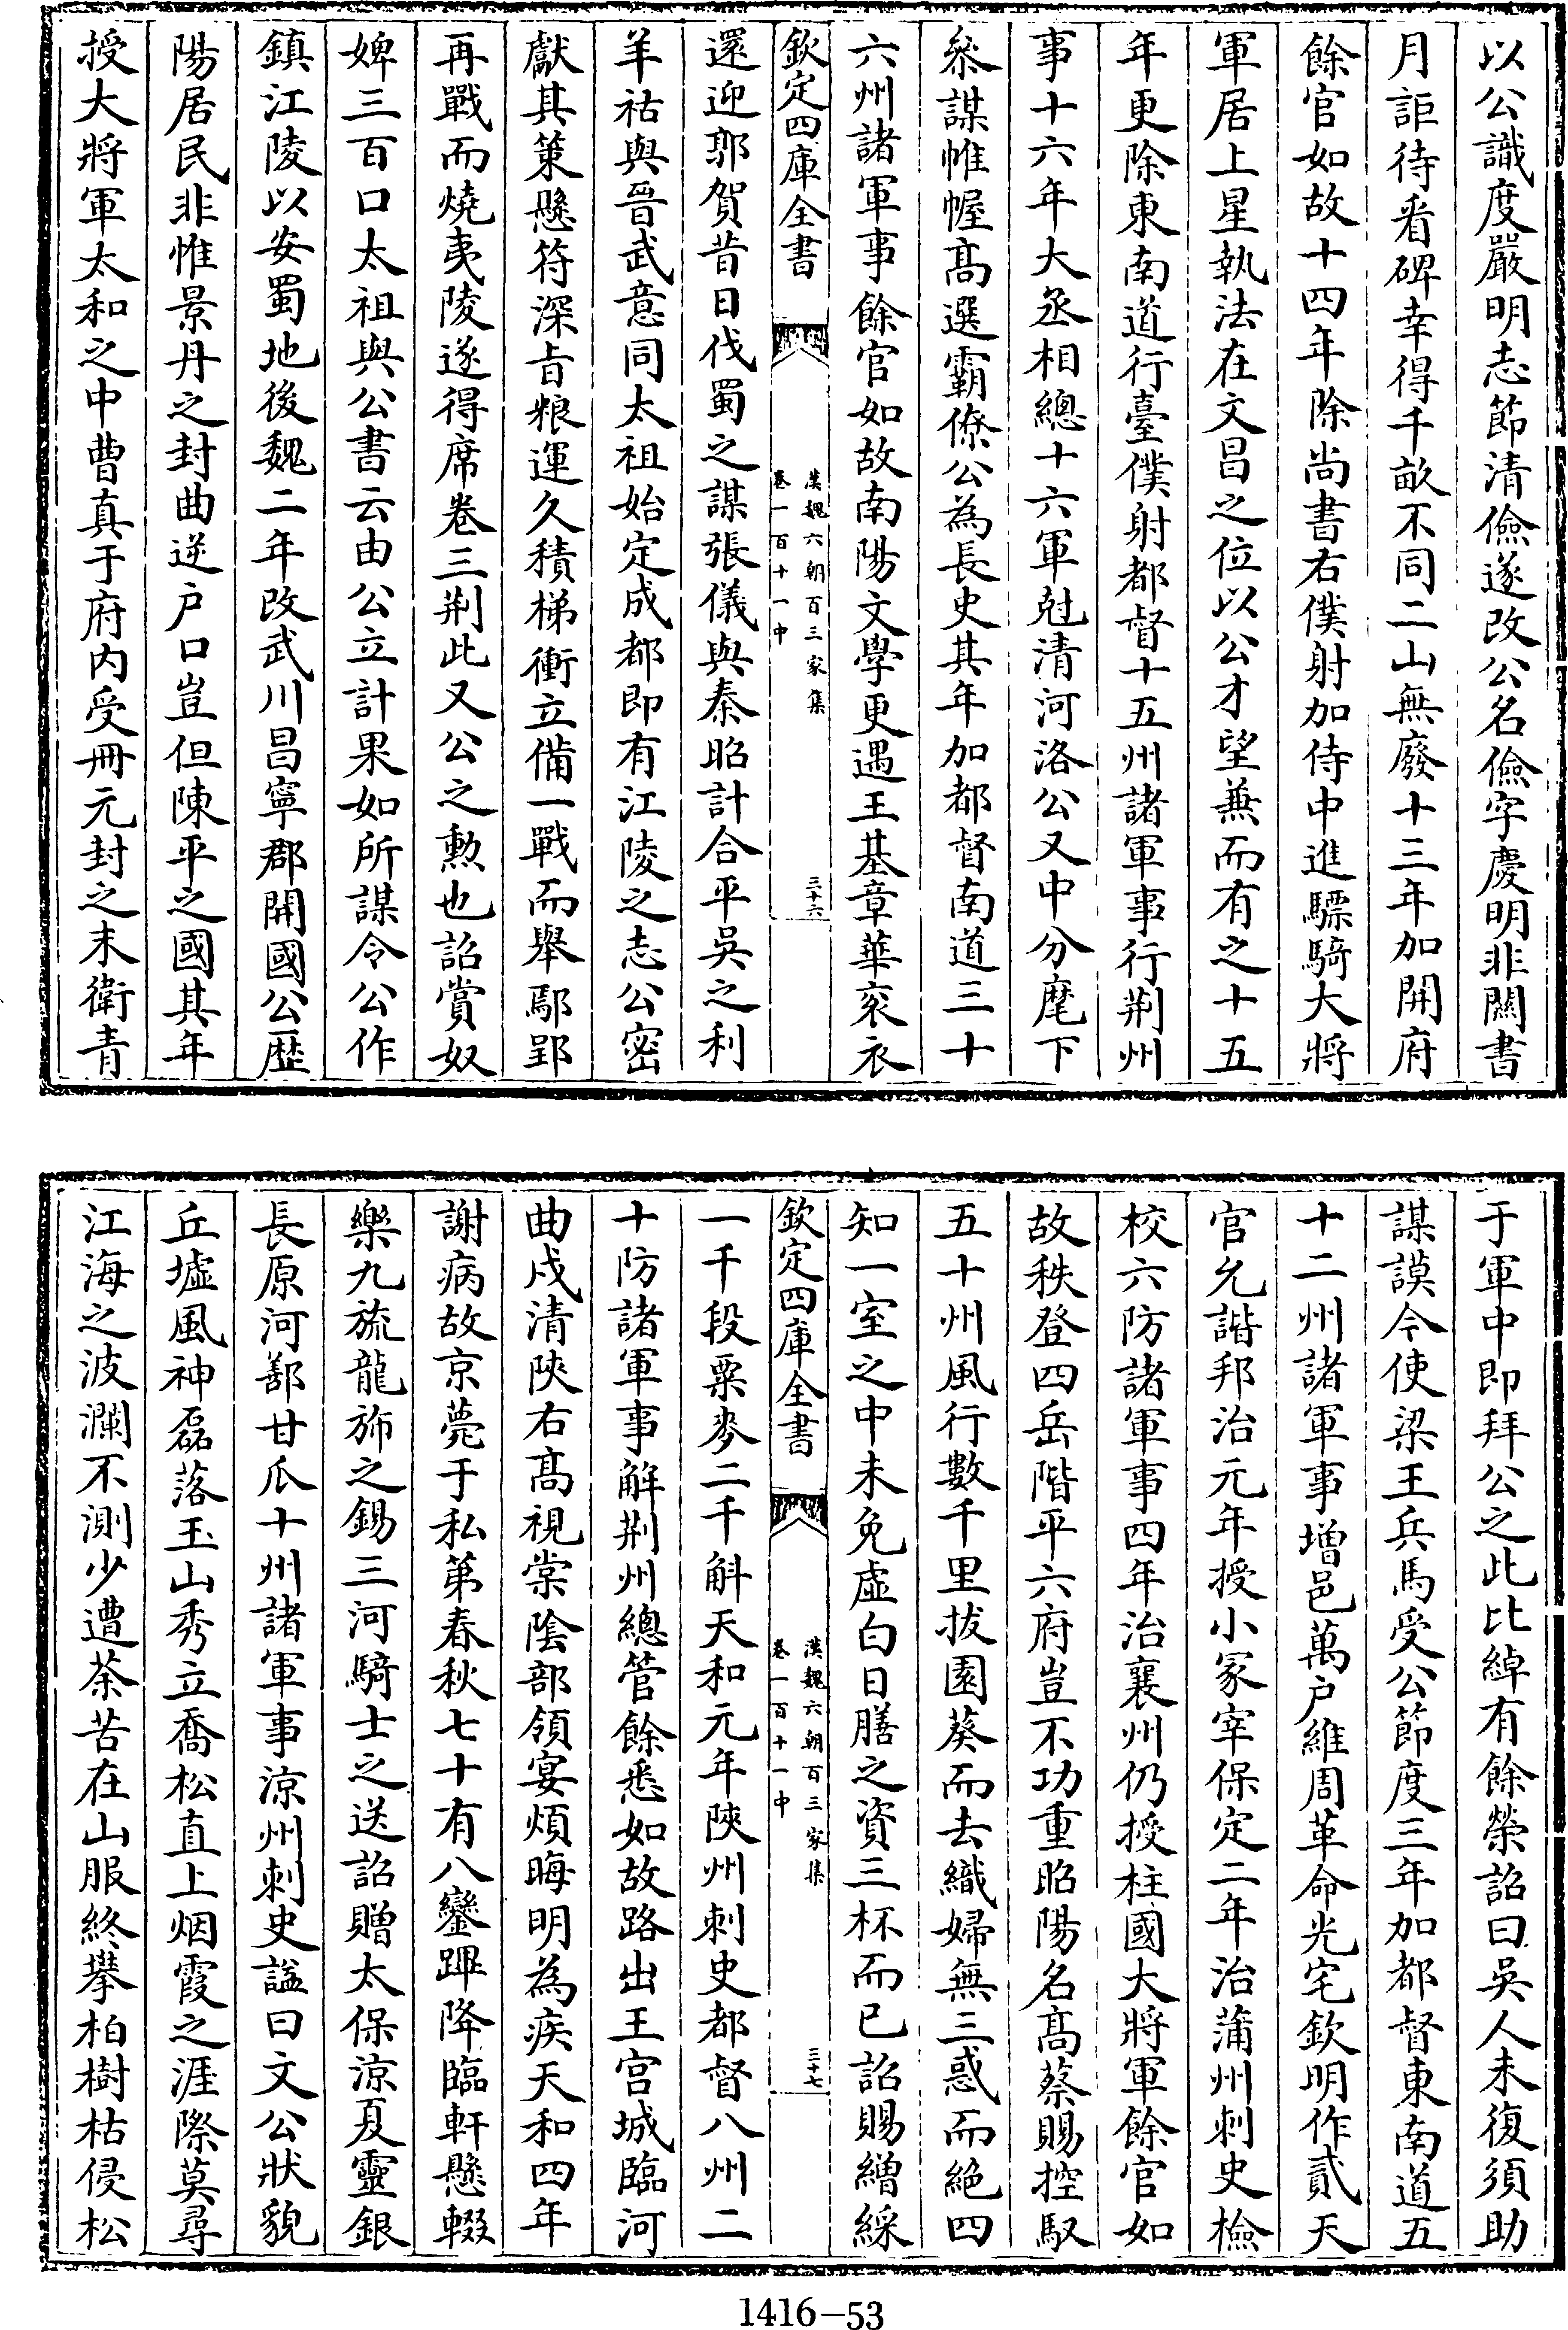 以公識度嚴明志節清儉遂改公名儉字慶明非關書
月詎待看碑幸得千畝不同二山無廢十三年加開府
餘官如故十四年除尚書右僕射加侍中進驃騎大將
軍居上星執法在文昌之位以公才望兼而有之十五
年更除東南道行臺僕射都督十五州諸軍事行荆州
事十六年大丞相總十六軍尅清河洛公又中分麾下
叅謀帷幄髙選霸僚公為長史其年加都督南道三十
六州諸軍事餘官如故南陽文學更遇王基章華衮衣
欽定四庫全書
漢魏六朝百三家集
卷一百十一中
三十六
還迎郭賀昔日伐蜀之謀張儀與秦昭計合平吳之利
羊祜與晉武意同太祖始定成都即有江陵之志公密
獻其策懸符深旨粮運久積梯衝立備一戰而舉鄢郢
再戰而燒夷陵遂得席卷三荆此又公之勲也詔賞奴
婢三百口太祖與公書云由公立計果如所謀令公作
鎮江陵以安蜀地後魏二年改武川昌寧郡開國公歴
陽居民非惟景丹之封曲逆户口豈但陳平之國其年
授大將軍太和之中曹真于府内受冊元封之末衛青
于軍中即拜公之此比綽有餘榮詔曰吳人未復須助
謀謨今使梁王兵馬受公節度三年加都督東南道五
十二州諸軍事増邑萬户維周革命光宅欽明作貳天
官允諧邦治元年授小冢宰保定二年治蒲州刺史檢
校六防諸軍事四年治襄州仍授柱國大將軍餘官如
故秩登四岳階平六府豈不功重昭陽名髙蔡賜控馭
五十州風行數千里拔園葵而去織婦無三惑而絶四
知一室之中未免虛白日膳之資三杯而已詔賜繒綵
欽定四庫全書
漢魏六朝百三家集
卷一百十一中
三十七
一千段粟麥二千斛天和元年陜州刺史都督八州二
十防諸軍事解荆州總管餘悉如故路出王宫城臨河
曲戍清陜右髙視棠陰部領宴煩晦明為疾天和四年
謝病故京薨于私第春秋七十有八鑾蹕降臨軒懸輟
樂九旒龍斾之錫三河騎士之送詔贈太保涼夏靈銀
長原河鄯甘瓜十州諸軍事涼州刺史諡曰文公狀貌
丘墟風神磊落玉山秀立喬松直上烟霞之涯際莫尋
江海之波瀾不測少遭荼苦在山服終攀柏樹枯侵松
1416-53